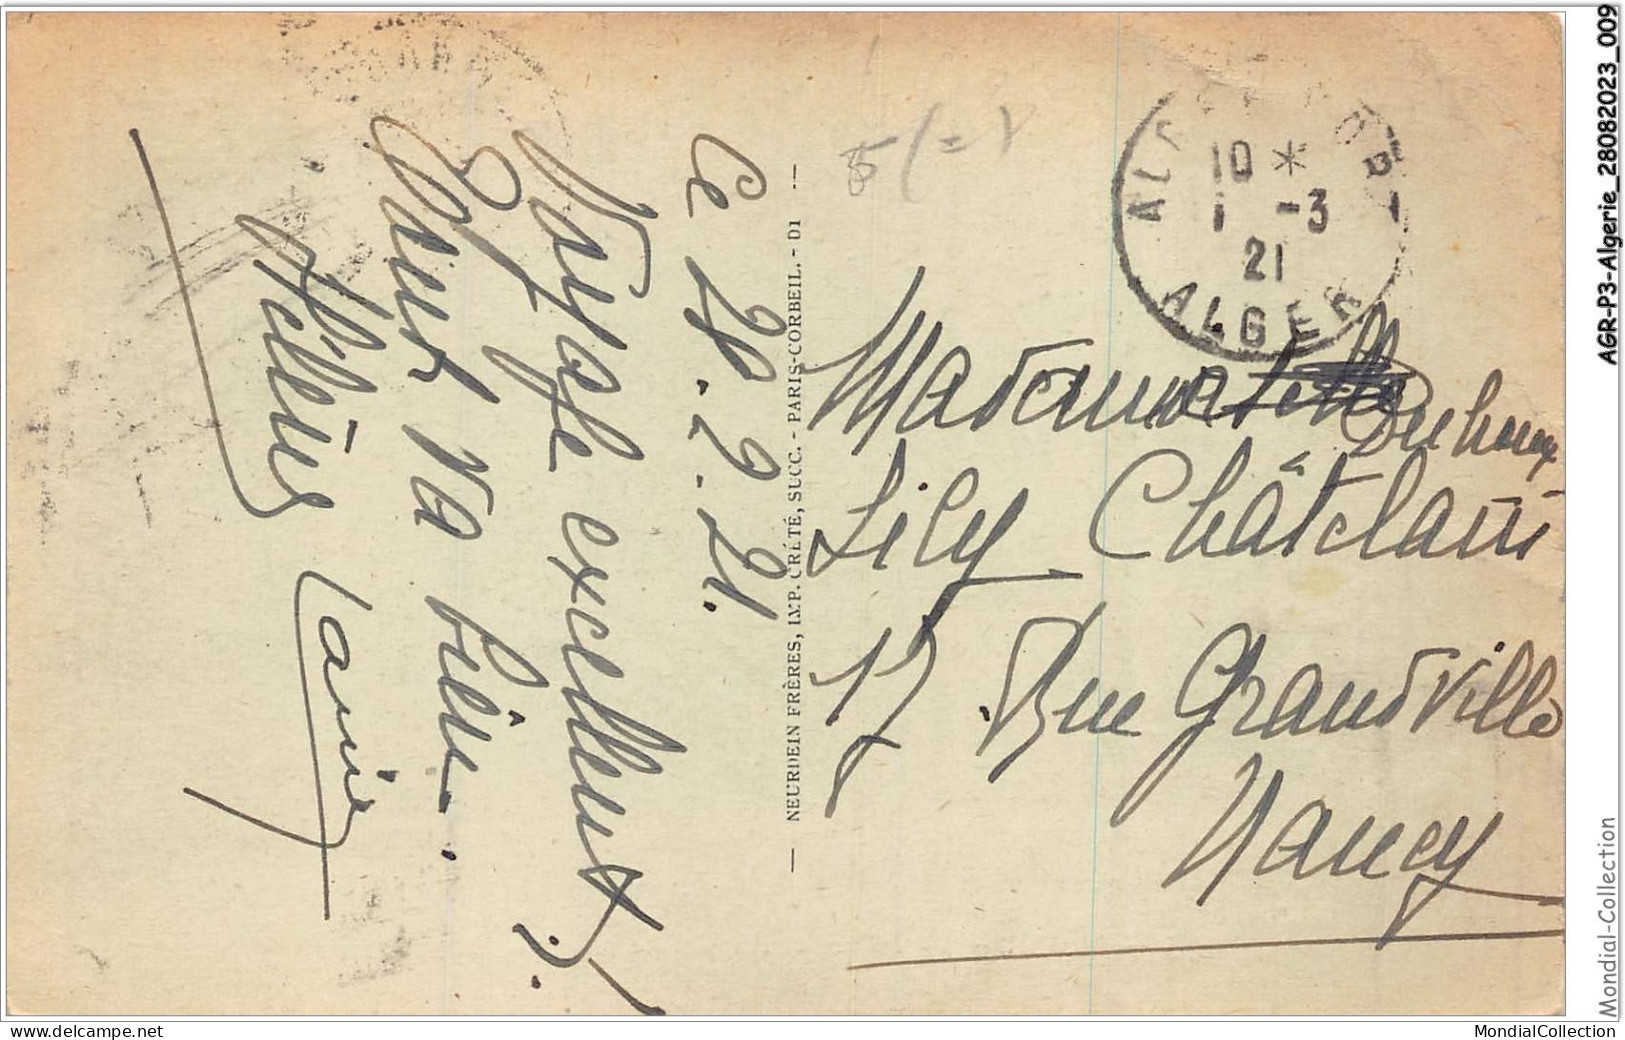 Ce 28.2.21.
Voyage excellent;
tout va bien.
NEURDEIN FRÈRES, IMP. CRÉTÉ, SUCC. - PARIS-CORBEIL. - D1
10 *
1 -3
21
ALGER
Lily Châtelain
17 Rue Grandville
Nancy
AGR-P3-Algerie_28082023_009
Mondial-Collection
www.delcampe.net
MondialCollection